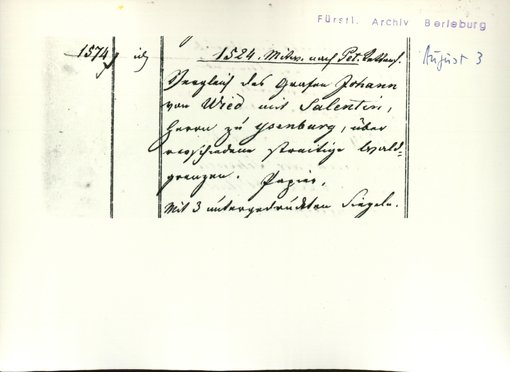 Fürstl. Archiv Berleburg
August 3
1574
1524. Mittw. nach Pet. Kettenf.
Vergleich des Grafen Johann
von Wied mit Salentin,
Herrn zu Ysenburg, über
verschiedene streitige Wald-
grenzen. Papier,
Mit 3 untergedrückten Siegeln.